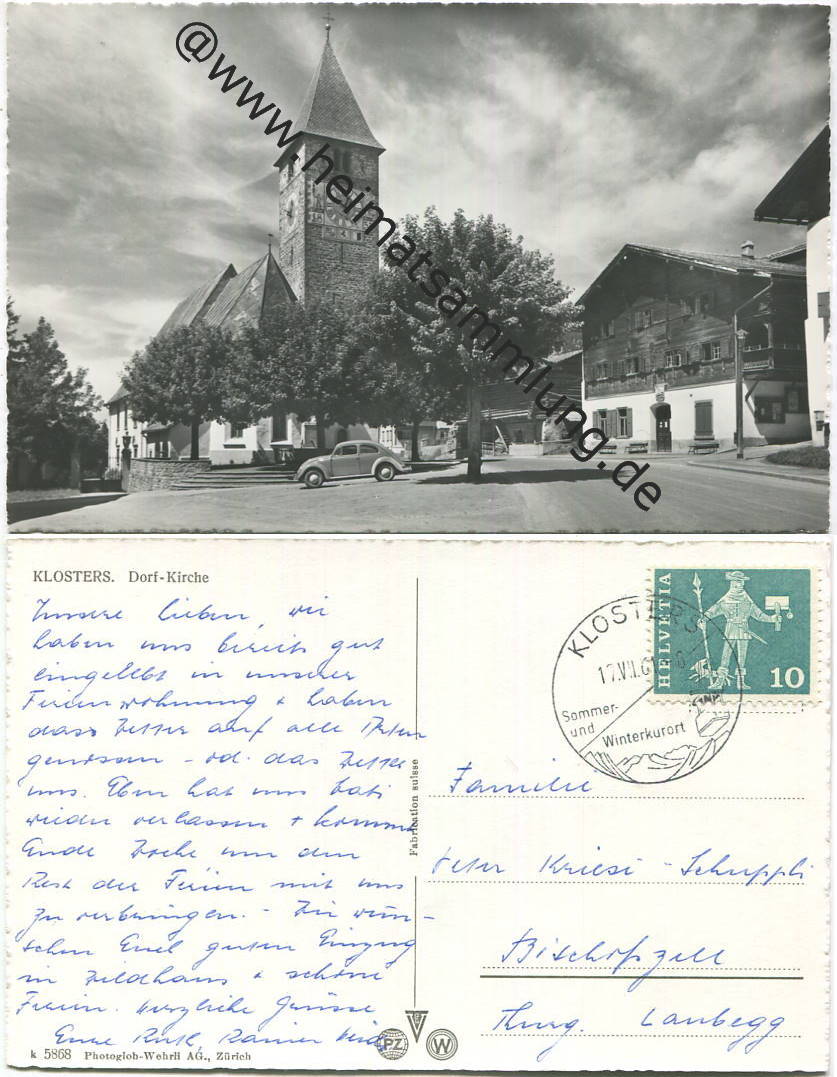 @www.heimatsammlung.de
KLOSTERS. Dorf-Kirche
Unsere lieben, wir
haben uns bereits gut
eingelebt in unserer
Ferienwohnung + haben
das Wetter auf alle Arten
genossen - od. das Wetter
uns. Eben hat uns Vati
wieder verlassen + kommt
Ende Woche um den
Rest der Ferien mit uns
zu verbringen. - Wir wün-
schen Euch guten Einzug
in Wildhaus + schöne
Ferien. Herzliche Grüsse
Eure Ruth, Rainer
k 5868 Photoglob-Wehrli AG., Zürich
Fabrication suisse
PZ
W
KLOSTERS
Sommer-
und Winterkurort
HELVETIA
10
Familie
Peter Kriesi-Schuppli
Bischofszell
Thurg. Laubegg